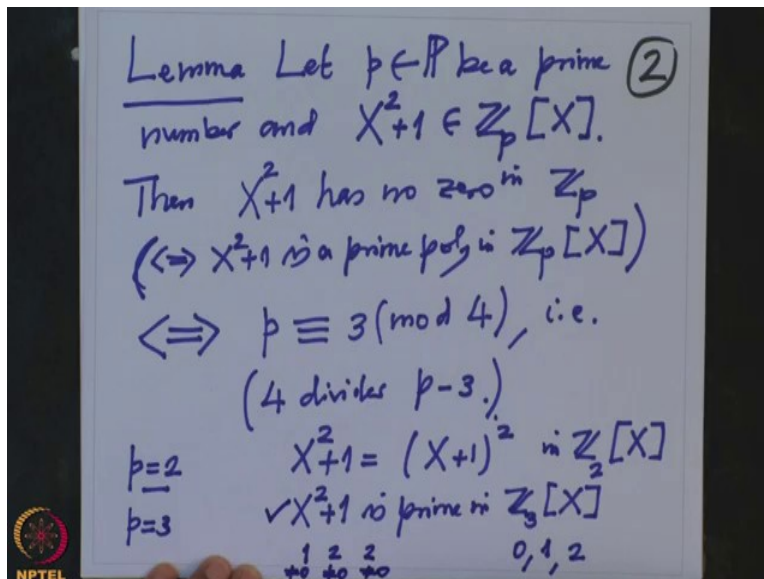 Lemma Let p∈ℙ be a prime ②
number and X²+1 ∈ ℤ_p[X].
Then X²+1 has no zero in ℤ_p
(⇔ X²+1 is a prime poly in ℤ_p[X])
⇔ p ≡ 3 (mod 4), i.e.
(4 divides p-3.)
p=2 X²+1 = (X+1)² in ℤ_2[X]
p=3 ✓X²+1 is prime in ℤ_3[X]
1 2 2 0, 1, 2
≠0 ≠0 ≠0
NPTEL